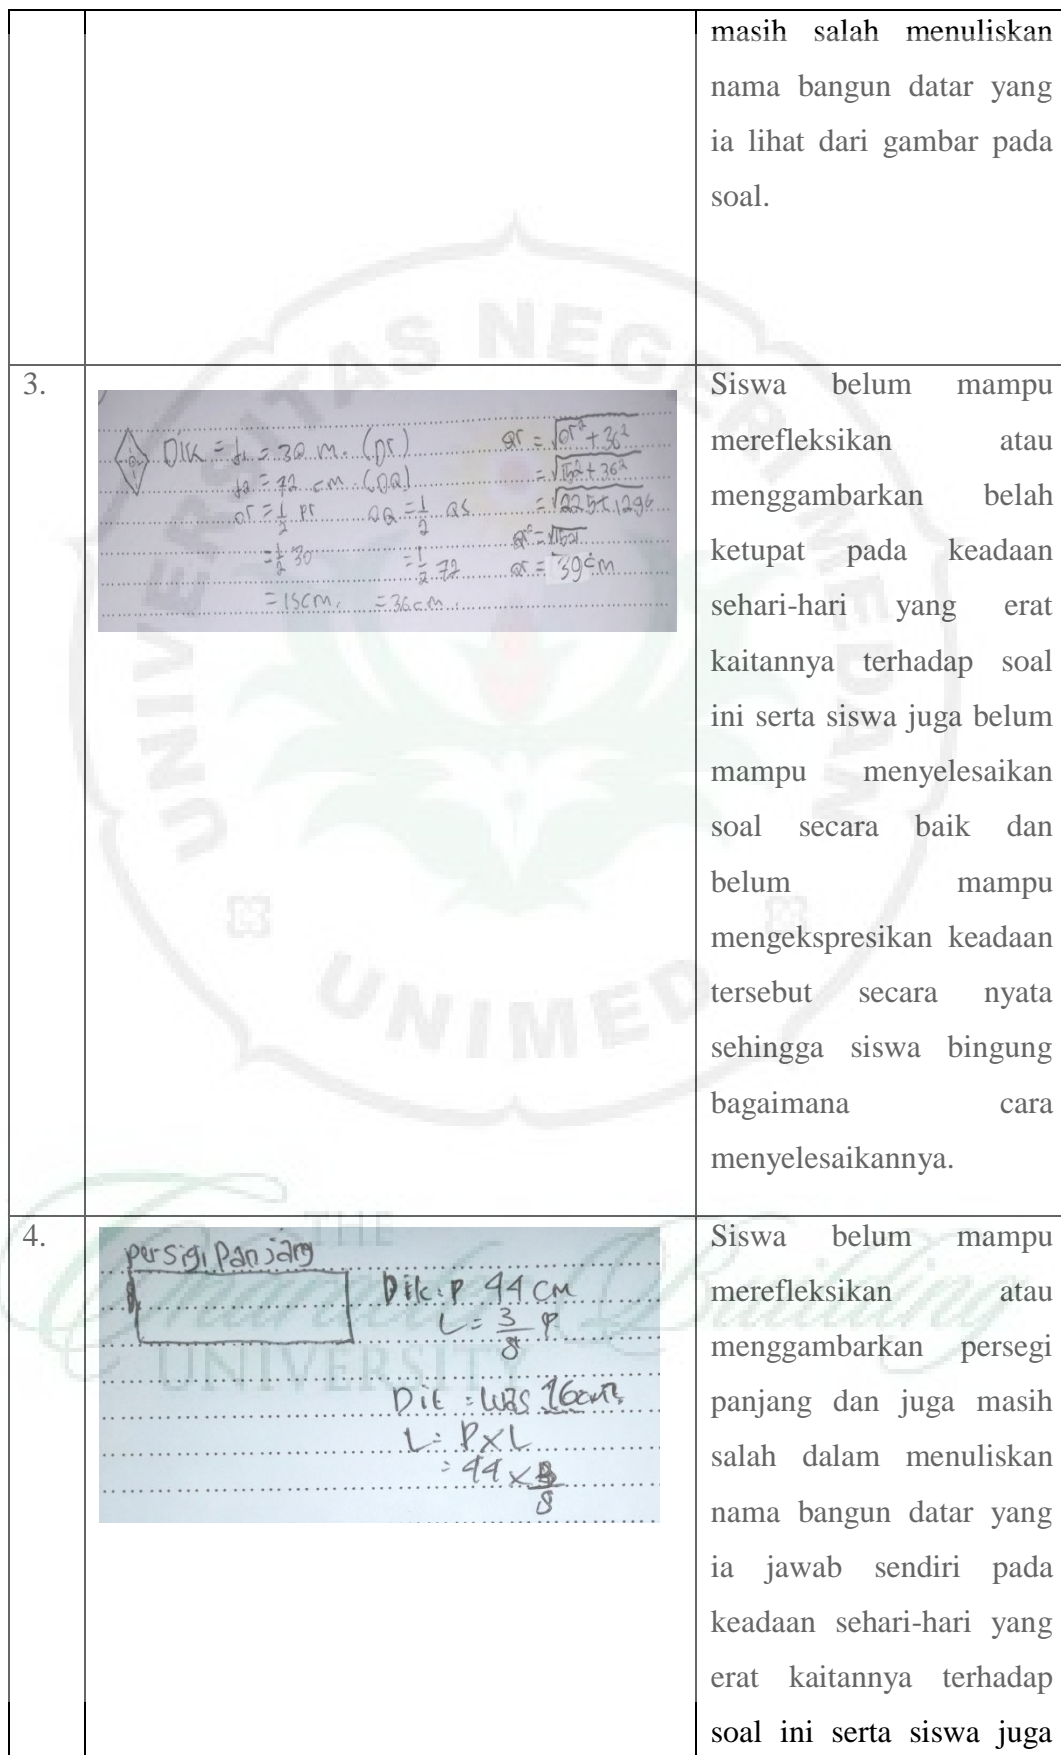 masih salah menuliskan
nama bangun datar yang
ia lihat dari gambar pada
soal.
3.
Dik = d1 = 30 m. (pr)
d2 = 72 cm (OQ)
or = 1/2 pr OQ = 1/2 QS
= 1/2 30 = 1/2 72
= 15 cm. = 36 cm.
qr = √or² + 36²
= √15² + 36²
= √225 + 1296
qr = √1521
qr = 39 cm
Siswa belum mampu
merefleksikan atau
menggambarkan belah
ketupat pada keadaan
sehari-hari yang erat
kaitannya terhadap soal
ini serta siswa juga belum
mampu menyelesaikan
soal secara baik dan
belum mampu
mengekspresikan keadaan
tersebut secara nyata
sehingga siswa bingung
bagaimana cara
menyelesaikannya.
4.
persigi Panjang
Dik: P 44 CM
L = 3/8 P
Dit : luas
L = P X L
= 44 X 3/8
Siswa belum mampu
merefleksikan atau
menggambarkan persegi
panjang dan juga masih
salah dalam menuliskan
nama bangun datar yang
ia jawab sendiri pada
keadaan sehari-hari yang
erat kaitannya terhadap
soal ini serta siswa juga
UNIVERSITAS NEGERI MEDAN
UNIMED
THE
Character Building
UNIVERSITY